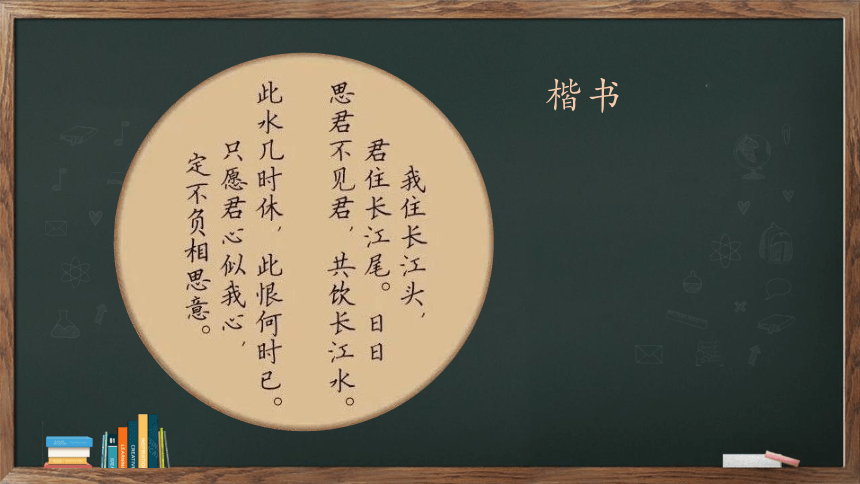 楷书
我住长江头，
君住长江尾。日日
思君不见君，共饮长江水。
此水几时休，此恨何时已。
只愿君心似我心，
定不负相思意。